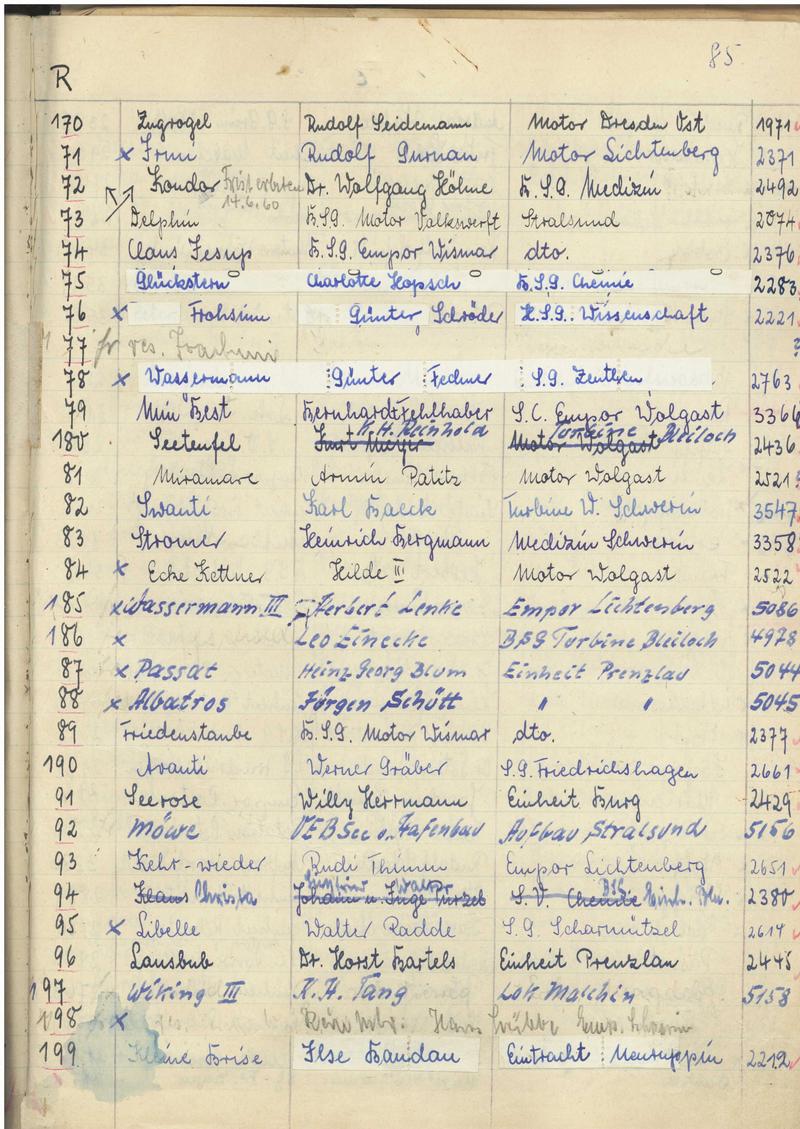 85
R
170 Zugvogel Rudolf Seidemann Motor Dresden Ost 1971
71 x Rudolf Motor Lichtenberg 2371
72 Kondor Frist erbeten 14.6.60 Dr. Wolfgang Höhne B.S.G. Medizin 2492
73 Delphin B.S.G. Motor Volkswerft Stralsund 2074
74 Claus Jesup B.S.G. Empor Wismar dto. 2376
75 Glückstern Charlotte Hopsch B.S.G. Chemie 2283
76 x Frohsinn Günter Schröder H.S.G. Wissenschaft 2221
77 res.
78 x Wassermann Günter Fechner S.G. Zeuthen 2763
79 Min Best Bernhard Fehlhaber S.C. Empor Wolgast 3366
K.H. Reinhold Turbine Bleiloch
180 Seeteufel Kurt Meyer Motor Wolgast 2436
81 Miramare Armin Patitz Motor Wolgast 2521
82 Swanti Karl Baeck Turbine W. Schwerin 3547
83 Stromer Heinrich Bergmann Medizin Schwerin 3358
84 x Ecke Kettner Hilde II Motor Wolgast 2522
185 x Wassermann III Herbert Lenke Empor Lichtenberg 5086
186 x Leo Einecke BSG Turbine Bleiloch 4978
87 x Passat Heinz Georg Blum Einheit Prenzlau 5044
88 x Albatros Jürgen Schütt " " 5045
89 Friedenstaube B.S.G. Motor Wismar dto. 2377
190 Avanti Werner Gräber S.G. Friedrichshagen 2661
91 Seerose Willy Herrmann Einheit Burg 2429
92 Möwe VEB See u. Hafenbau Aufbau Stralsund 5156
93 Kehr-wieder Rudi Thimm Empor Lichtenberg 2651
94 Klaus Christa Johann u. Inge S.V. Chemie BSG Einh. 2380
95 x Libelle Walter Radde S.G. Scharmützel 2614
96 Lausbub Dr. Horst Bartels Einheit Prenzlau 2445
197 Wiking III K.H. Tang Lok Malchin 5158
198 x Hans Emp. Schwerin
199 Kleine Brise Ilse Baudau Eintracht Neuruppin 2212